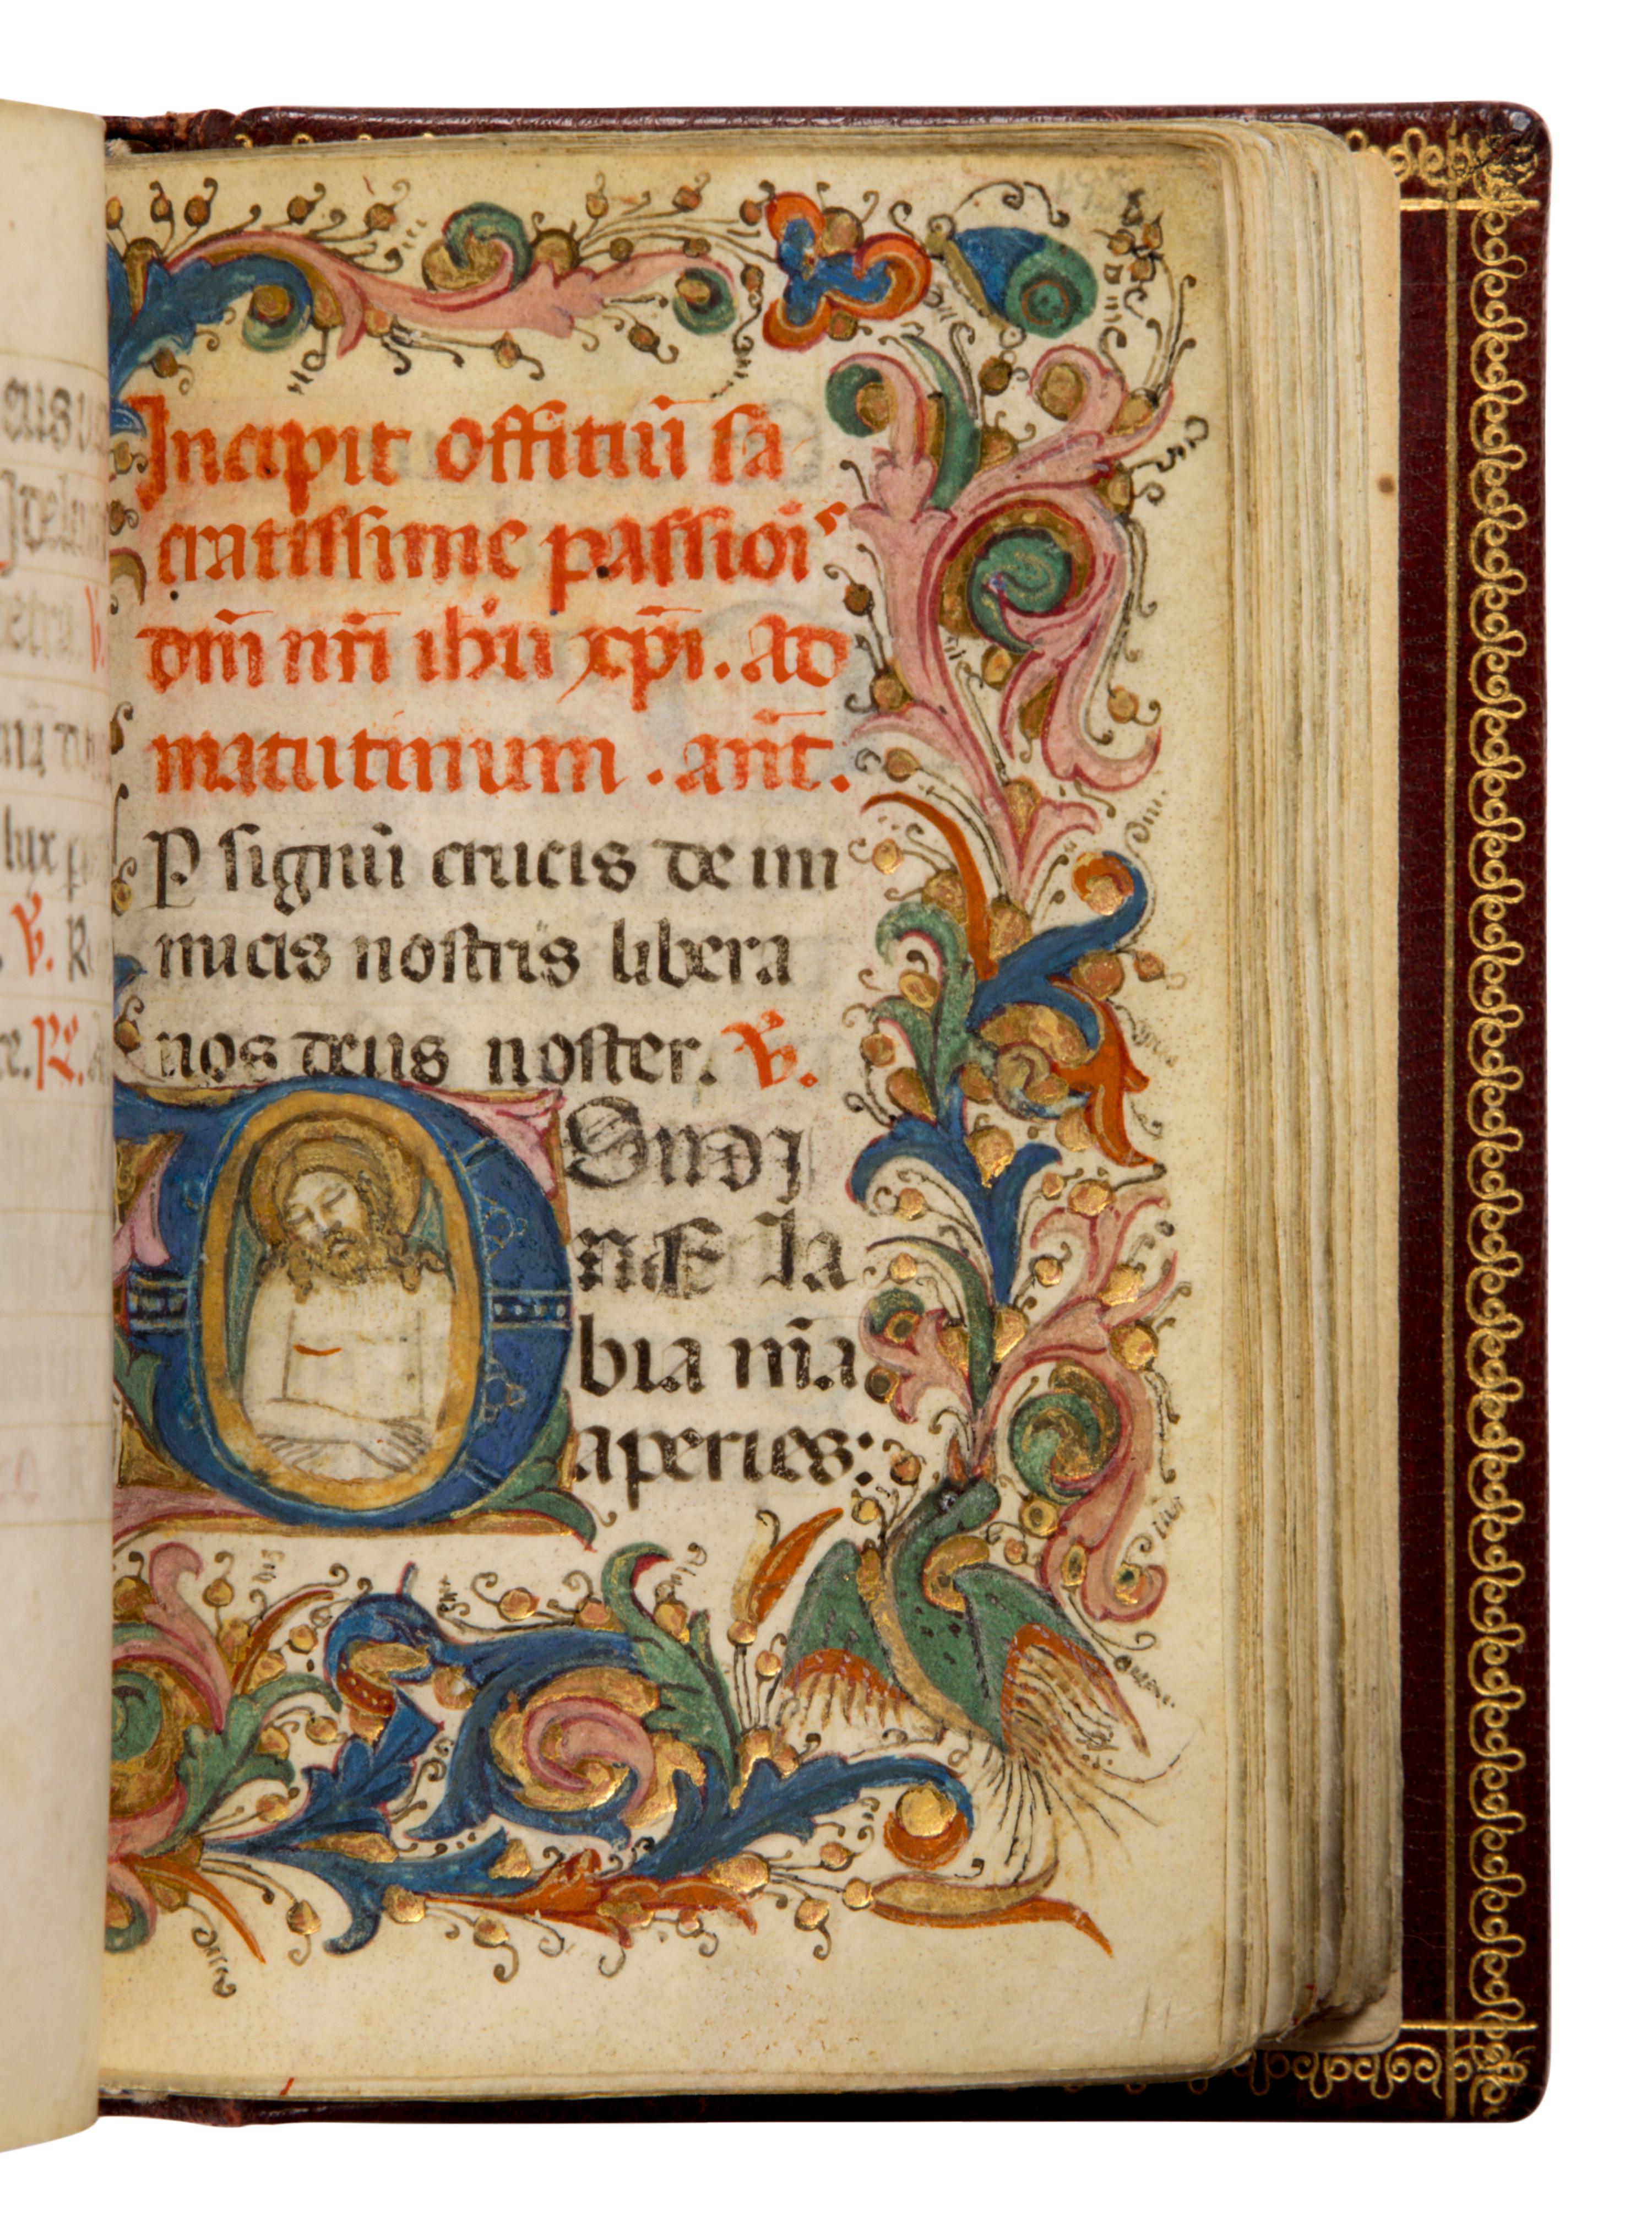 Incipit offitiū sa
cratissime passioī
dn̄i nr̄i ihū xp̄i. Ad
matutinum. ant̄.
P signū crucis de ini
micis nostris libera
nos deus noster. V.
D
nE la
bia m̄a
aperies:
lux
V. R
R.